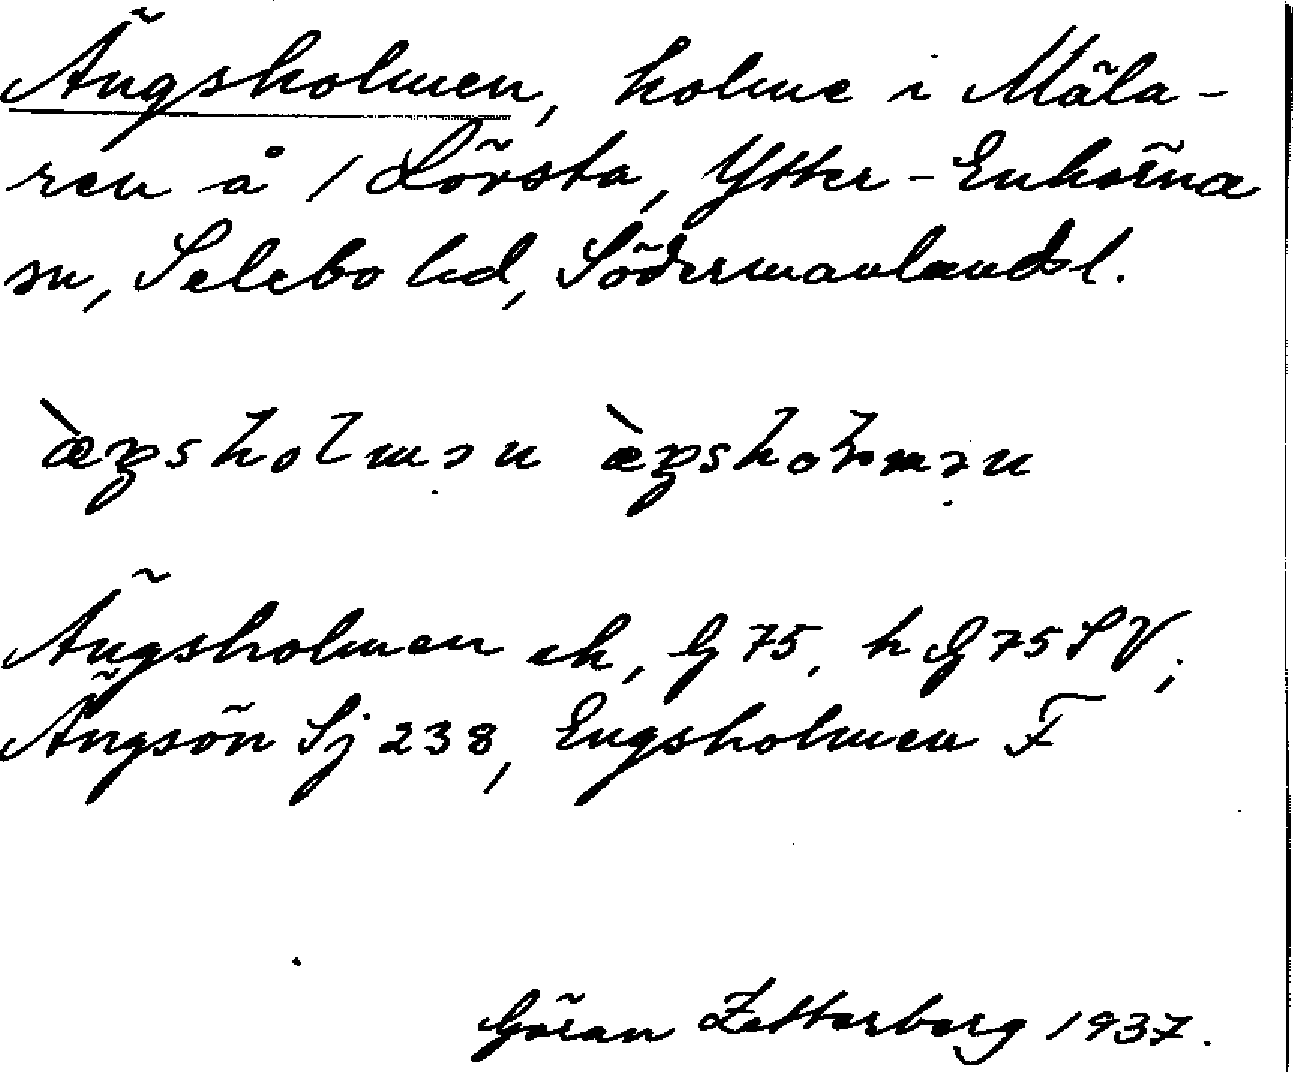 Ängsholmen, holme i Mäla-
ren å 1 Lövsta, Ytter-Enhörna
sn, Selebo hd, Södermanlands l.
æ̀ŋsholmən æ̀ŋshoɫmən
Ängsholmen ek, G 75, h G 75 SV,
Ängsön Sj 238, Engsholmen F
Göran Zetterberg 1937.